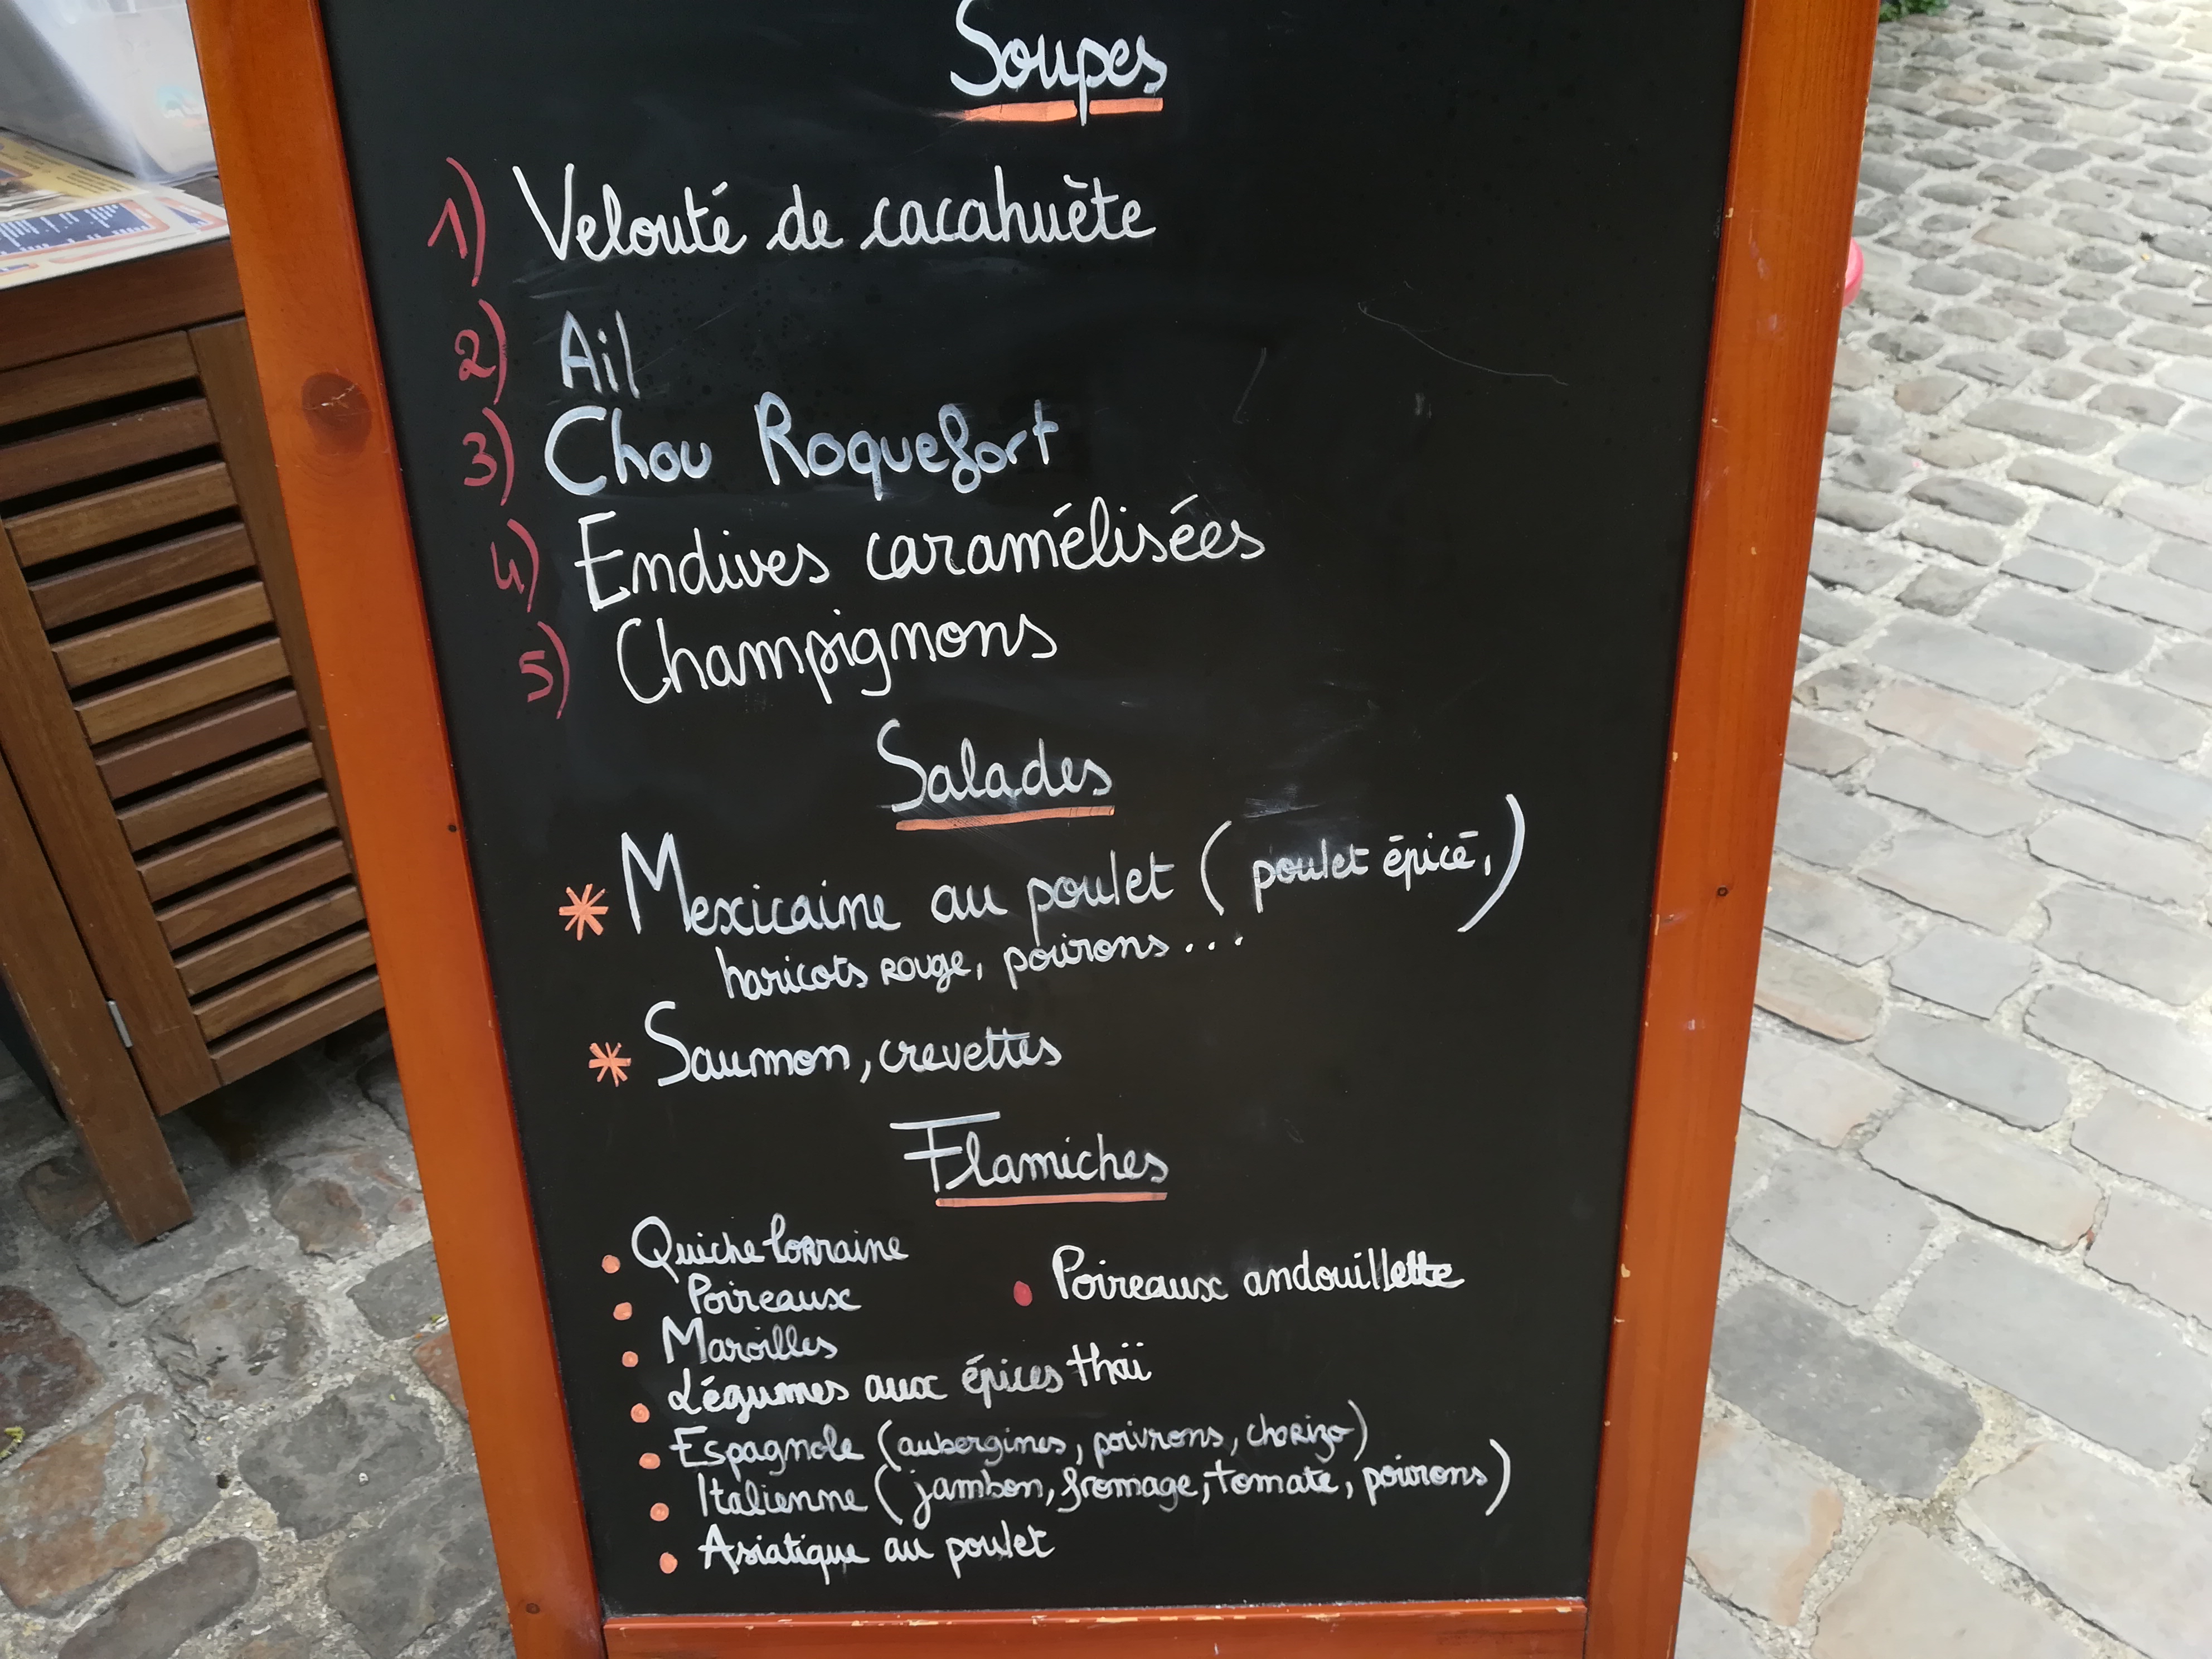 Soupes
1) Velouté de cacahuète
2) Ail
3) Chou Roquefort
4) Endives caramélisées
5) Champignons
Salades
* Mexicaine au poulet ( poulet épicé, )
haricots rouge, poivrons ...
* Saumon, crevettes
Flamiches
• Quiche lorraine
• Poireaux
• Poireaux andouillette
• Maroilles
• Légumes aux épices thaï
• Espagnole (aubergines, poivrons, chorizo)
• Italienne (jambon, fromage, tomate, poivrons)
• Asiatique au poulet